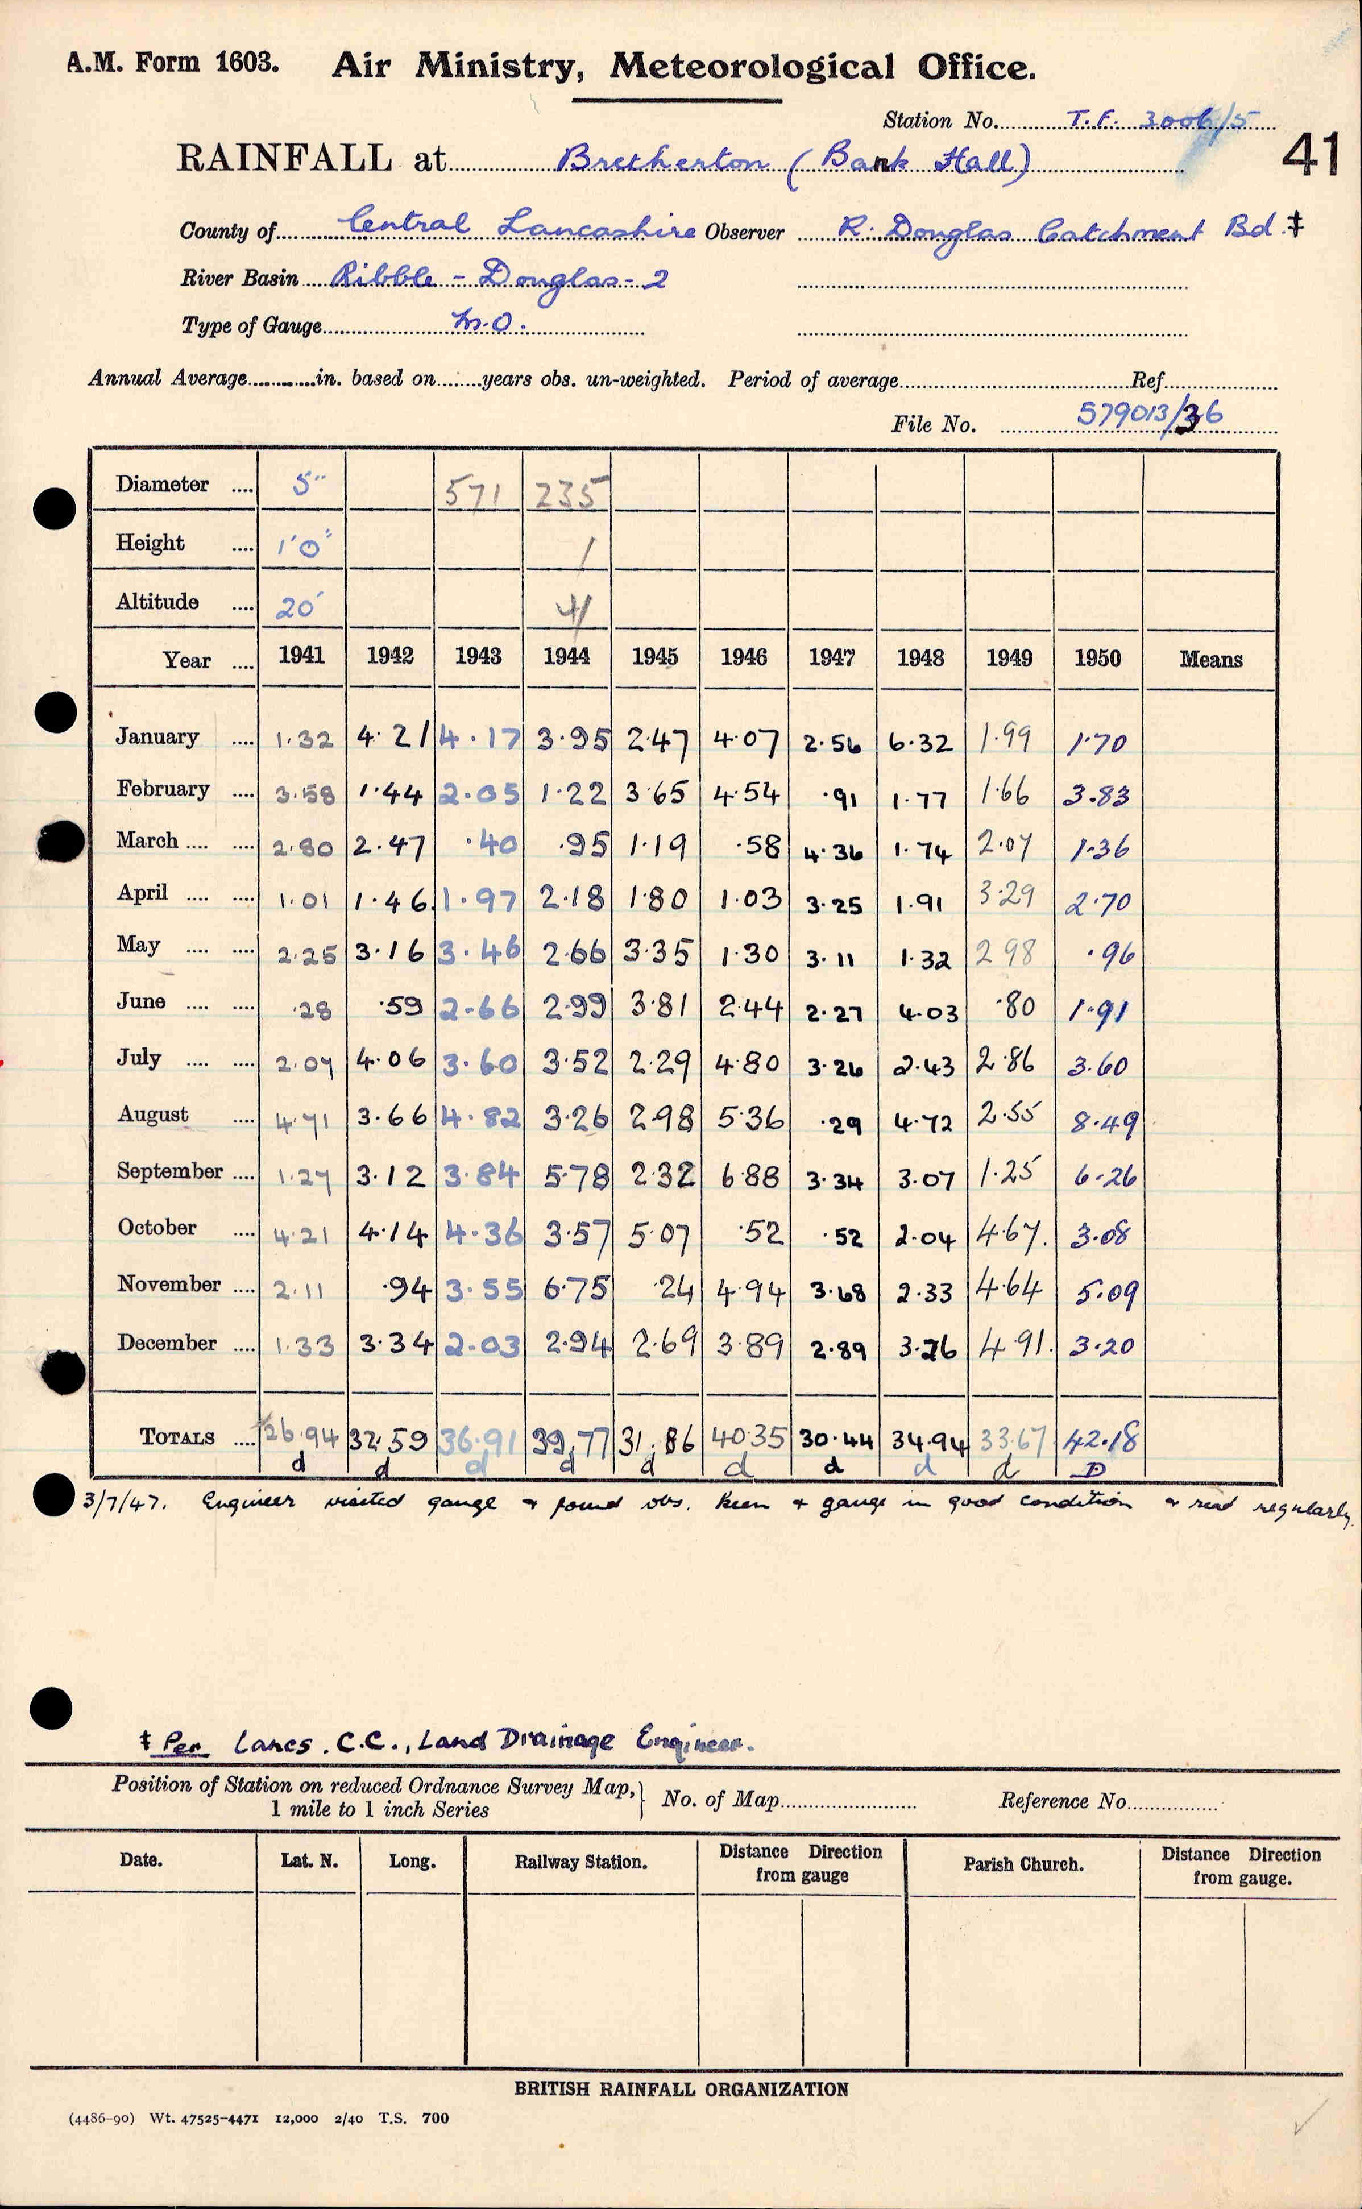 A.M. Form 1603. Air Ministry, Meteorological Office.
Station No. T.F. 3006/5
RAINFALL at Bretherton (Bank Hall) 41
County of Central Lancashire Observer R. Douglas Catchment Bd ‡
River Basin Ribble - Douglas - 2
Type of Gauge M.O.
Annual Average in. based on years obs. un-weighted. Period of average Ref.
File No. 579013/36
Diameter 5" 571 235
Height 1'0" 1
Altitude 20' 4/
Year 1941 1942 1943 1944 1945 1946 1947 1948 1949 1950 Means
January 1.32 4.21 4.17 3.95 2.47 4.07 2.56 6.32 1.99 1.70
February 3.58 1.44 2.05 1.22 3.65 4.54 .91 1.77 1.66 3.83
March 2.80 2.47 .40 .95 1.19 .58 4.36 1.74 2.07 1.36
April 1.01 1.46 1.97 2.18 1.80 1.03 3.25 1.91 3.29 2.70
May 2.25 3.16 3.46 2.66 3.35 1.30 3.11 1.32 2.98 .96
June .28 .59 2.66 2.99 3.81 2.44 2.27 4.03 .80 1.91
July 2.07 4.06 3.60 3.52 2.29 4.80 3.26 2.43 2.86 3.60
August 4.71 3.66 4.82 3.26 2.98 5.36 .29 4.72 2.55 8.49
September 1.27 3.12 3.84 5.78 2.32 6.88 3.34 3.07 1.25 6.26
October 4.21 4.14 4.36 3.57 5.07 .52 .52 2.04 4.67 3.08
November 2.11 .94 3.55 6.75 .24 4.94 3.68 2.33 4.64 5.09
December 1.33 3.34 2.03 2.94 2.69 3.89 2.89 3.26 4.91 3.20
TOTALS 26.94 32.59 36.91 39.77 31.86 40.35 30.44 34.94 33.67 42.18
d d d d d d d d d D
3/7/47. Engineer visited gauge & found obs. keen & gauge in good condition & read regularly.
‡ Per Lancs. C.C., Land Drainage Engineer.
Position of Station on reduced Ordnance Survey Map, 1 mile to 1 inch Series } No. of Map Reference No.
Date. Lat. N. Long. Railway Station. Distance Direction from gauge Parish Church. Distance Direction from gauge.
BRITISH RAINFALL ORGANIZATION
(4486-90) Wt. 47525-4471 12,000 2/40 T.S. 700